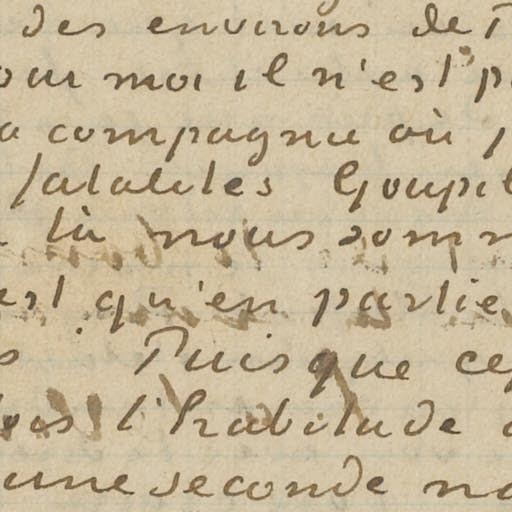 des environs de
our moi il n'est p
compagnie où
fatalités Goupil
là nous somm
est qu'en partie
Puisque cep
l'habitude
une seconde no